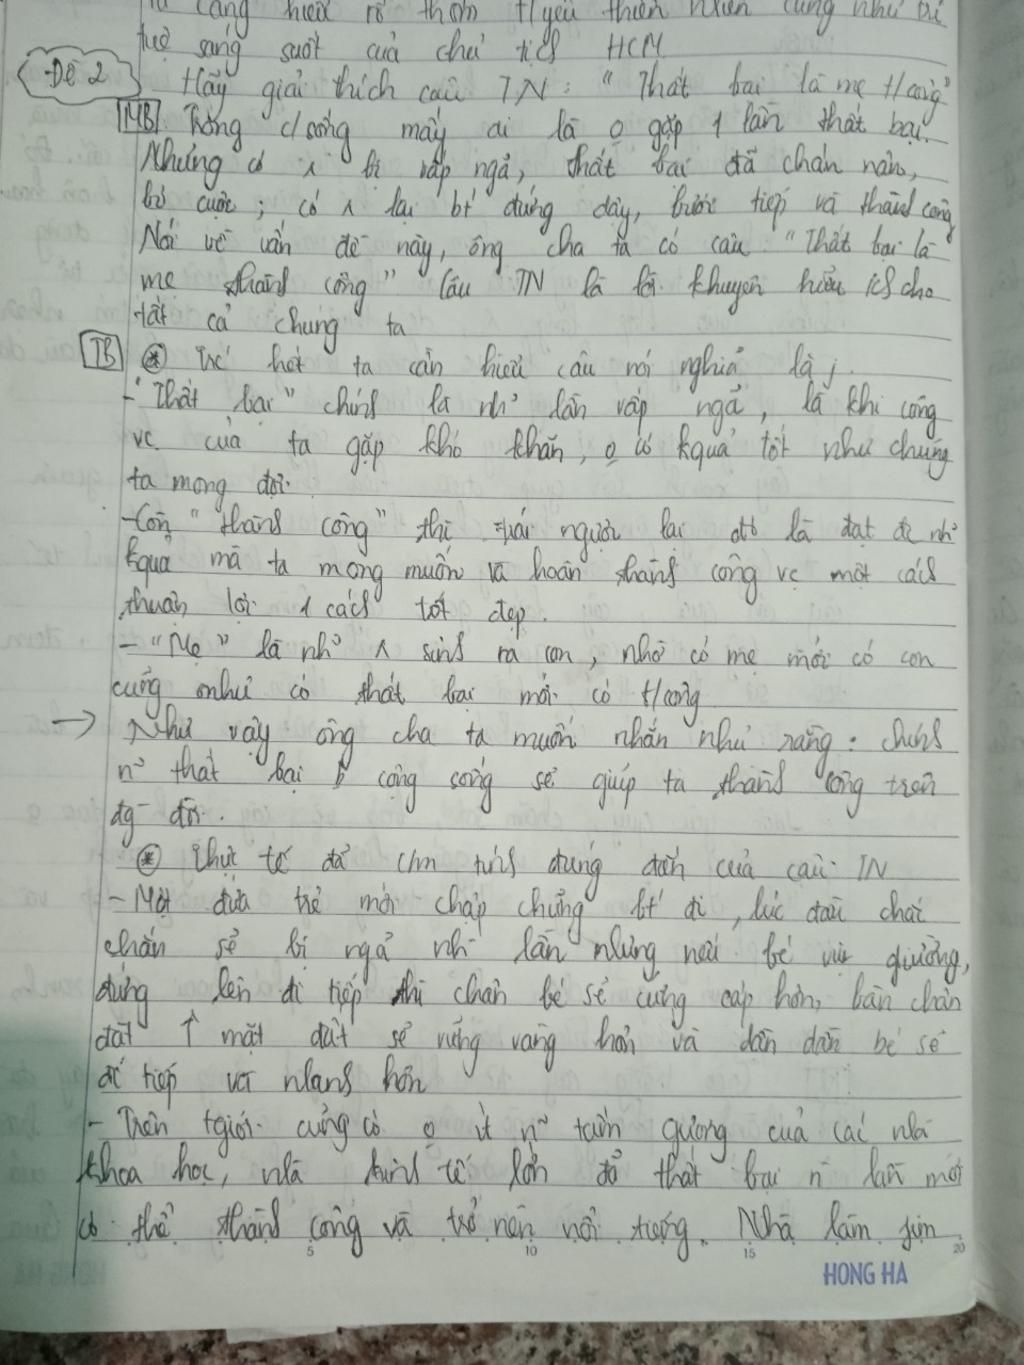 càng hiểu rõ thơm t/yêu thiên nhiên cũng như trí
tuệ sáng suốt của chủ tịch HCM
Đề 2
Hãy giải thích câu TN: "Thất bại là mẹ t/công"
MB Trong c/sống mấy ai là o gặp 1 lần thất bại.
Nhưng có λ bị vấp ngã, thất bại đã chán nản,
bỏ cuộc; có λ lại bt' đứng dậy, bước tiếp và thành công
Nói về vấn đề này, ông cha ta có câu "Thất bại là
mẹ thành công" Câu TN là lời khuyên hữu ích cho
tất cả chúng ta
TB * Trc' hết ta cần hiểu câu nói nghĩa là j.
- "Thất bại" chính là nh~ lần vấp ngã, là khi công
vc của ta gặp khó khăn, o có kquả tốt như chúng
ta mong đợi.
- Còn "thành công" thì trái ngược lại đó là đạt đc nh~
kquả mà ta mong muốn và hoàn thành công vc một cách
thuận lợi 1 cách tốt đẹp.
- "Mẹ" là nh~ λ sinh ra con, nhờ có mẹ mới có con
cũng như có thất bại mới có t/công
→ Như vậy ông cha ta muốn nhắn nhủ rằng: chính
n~ thất bại cộng sống sẽ giúp ta thành công trên
đg đời.
* Thực tế đã c/m tính đúng đắn của câu TN
- Một đứa trẻ mới chập chững bt' đi, lúc đầu chắc
chắn sẽ bị ngã nh` lần nhưng nếu bé vịn giường,
đứng lên đi tiếp thì chân bé sẽ cứng cáp hơn, bàn chân
đặt ↑ mặt đất sẽ vững vàng hơn và dần dần bé sẽ
đi tiếp và nhanh hơn
- Trên tgiới cũng có o ít n~ tấm gương của các nhà
khoa học, nhà kinh tế lớn đã thất bại n` lần mới
có thể thành công và trở nên nổi tiếng. Nhà làm
5 10 15 20
HONG HA